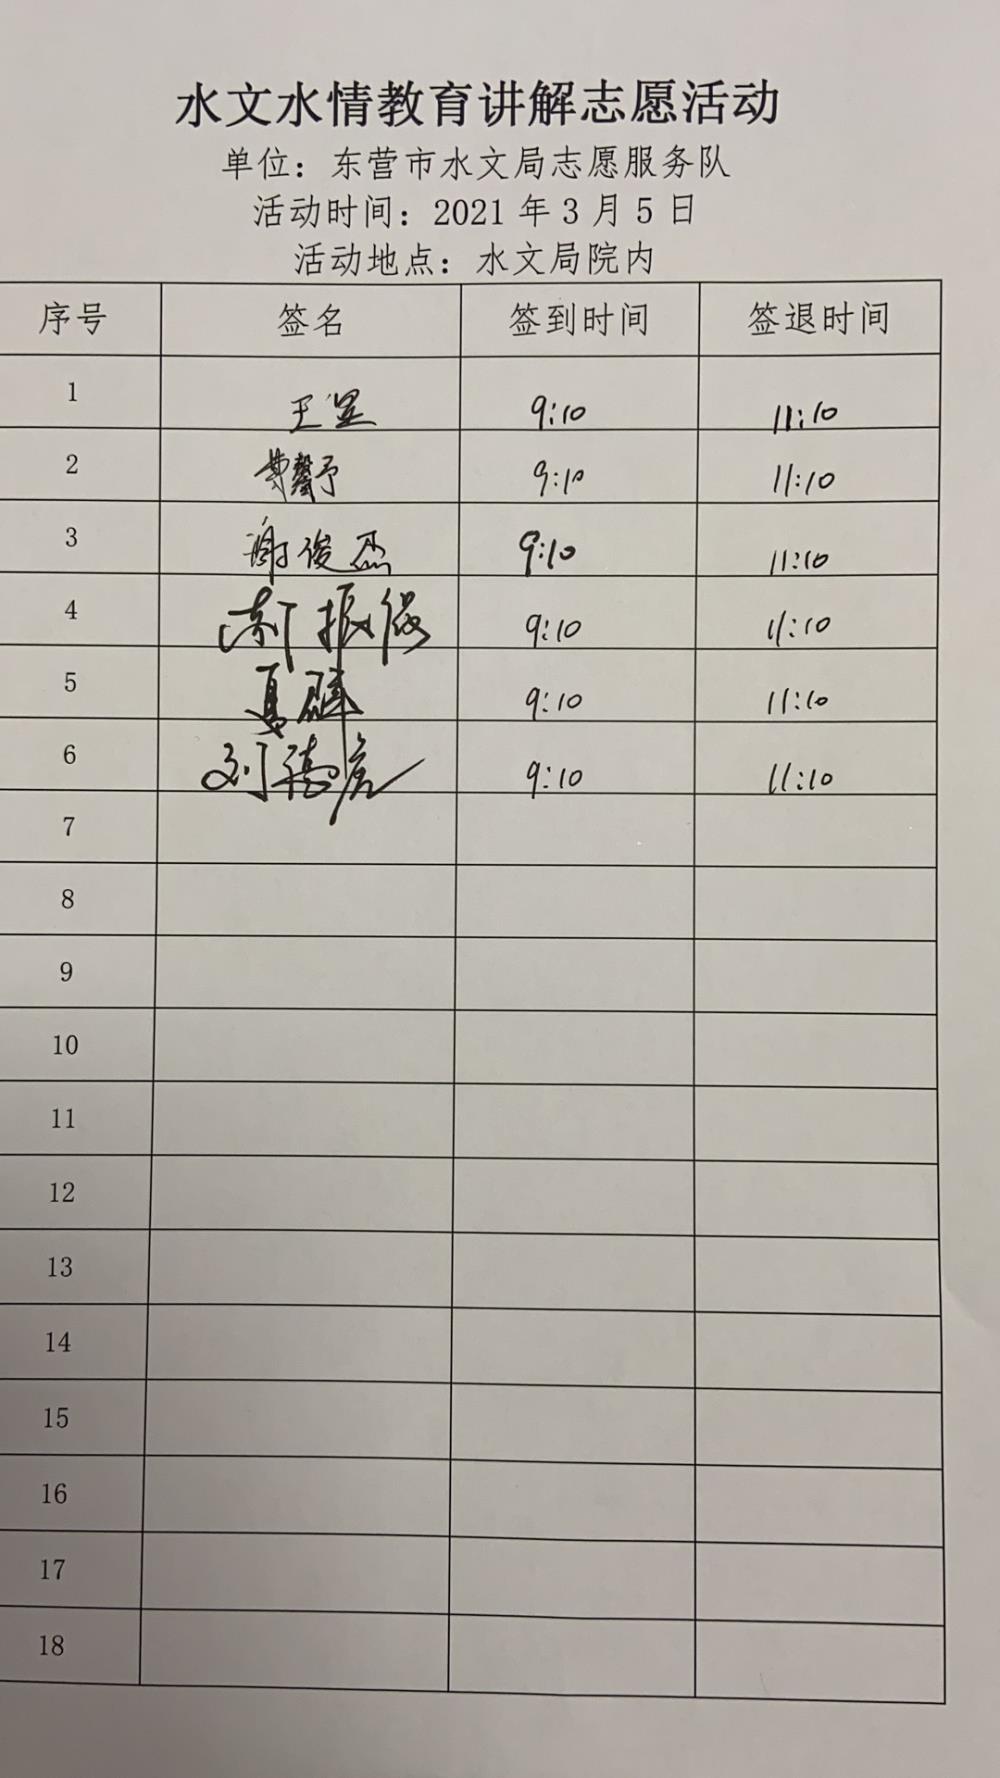 水文水情教育讲解志愿活动
单位：东营市水文局志愿服务队
活动时间：2021 年 3 月 5 日
活动地点：水文局院内
序号 签名 签到时间 签退时间
1 王昱 9:10 11:10
2 9:10 11:10
3 谢俊杰 9:10 11:10
4 9:10 11:10
5 9:10 11:10
6 刘德彦 9:10 11:10
7
8
9
10
11
12
13
14
15
16
17
18